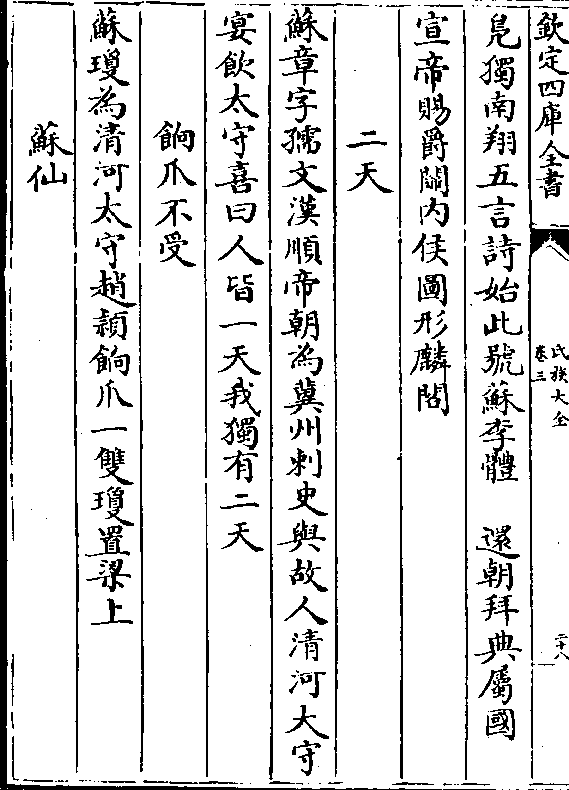 欽定四庫全書
氏族大全
卷三
二十八
鳬獨南翔五言詩始此號蘇李體　還朝拜典屬國
宣帝賜爵關内侯圖形麟閣
二天
蘇章字孺文漢順帝朝為冀州刺史與故人清河大守
宴飲太守喜曰人皆一天我獨有二天
餉爪不受
蘇瓊為清河太守趙頴餉爪一雙瓊置梁上
蘇仙